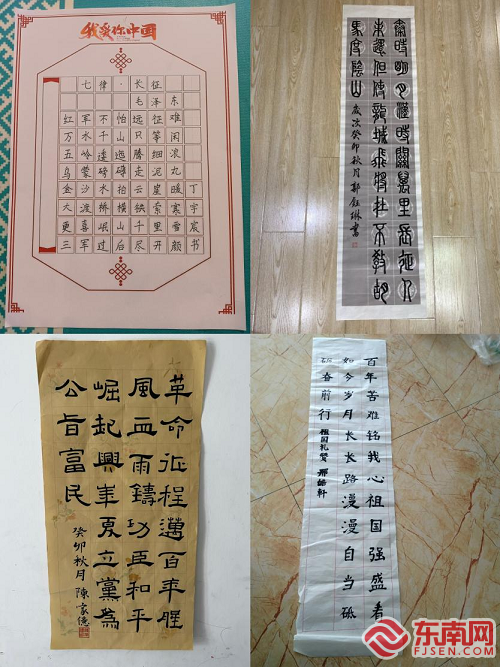 我爱你中国
七律·长征
毛泽东
红军不怕远征难
万水千山只等闲
五岭逶迤腾细浪
乌蒙磅礴走泥丸
金沙水拍云崖暖
大渡桥横铁索寒
更喜岷山千里雪
三军过后尽开颜
丁宇宸书
秦時明月漢時關萬里長征人
未還但使龍城飛將在不教胡
馬度陰山
歲次癸卯秋月郭鈺琳書
革命征程邁百年腥
風血雨鑄功臣和平
崛起興華夏立黨為
公旨富民
癸卯秋月陳家億
百年苦难铭我心祖国强盛看
如今岁月长长路漫漫自当砥
砺奋前行
祖国礼赞
邢皓轩
东南网
FJSEN.COM